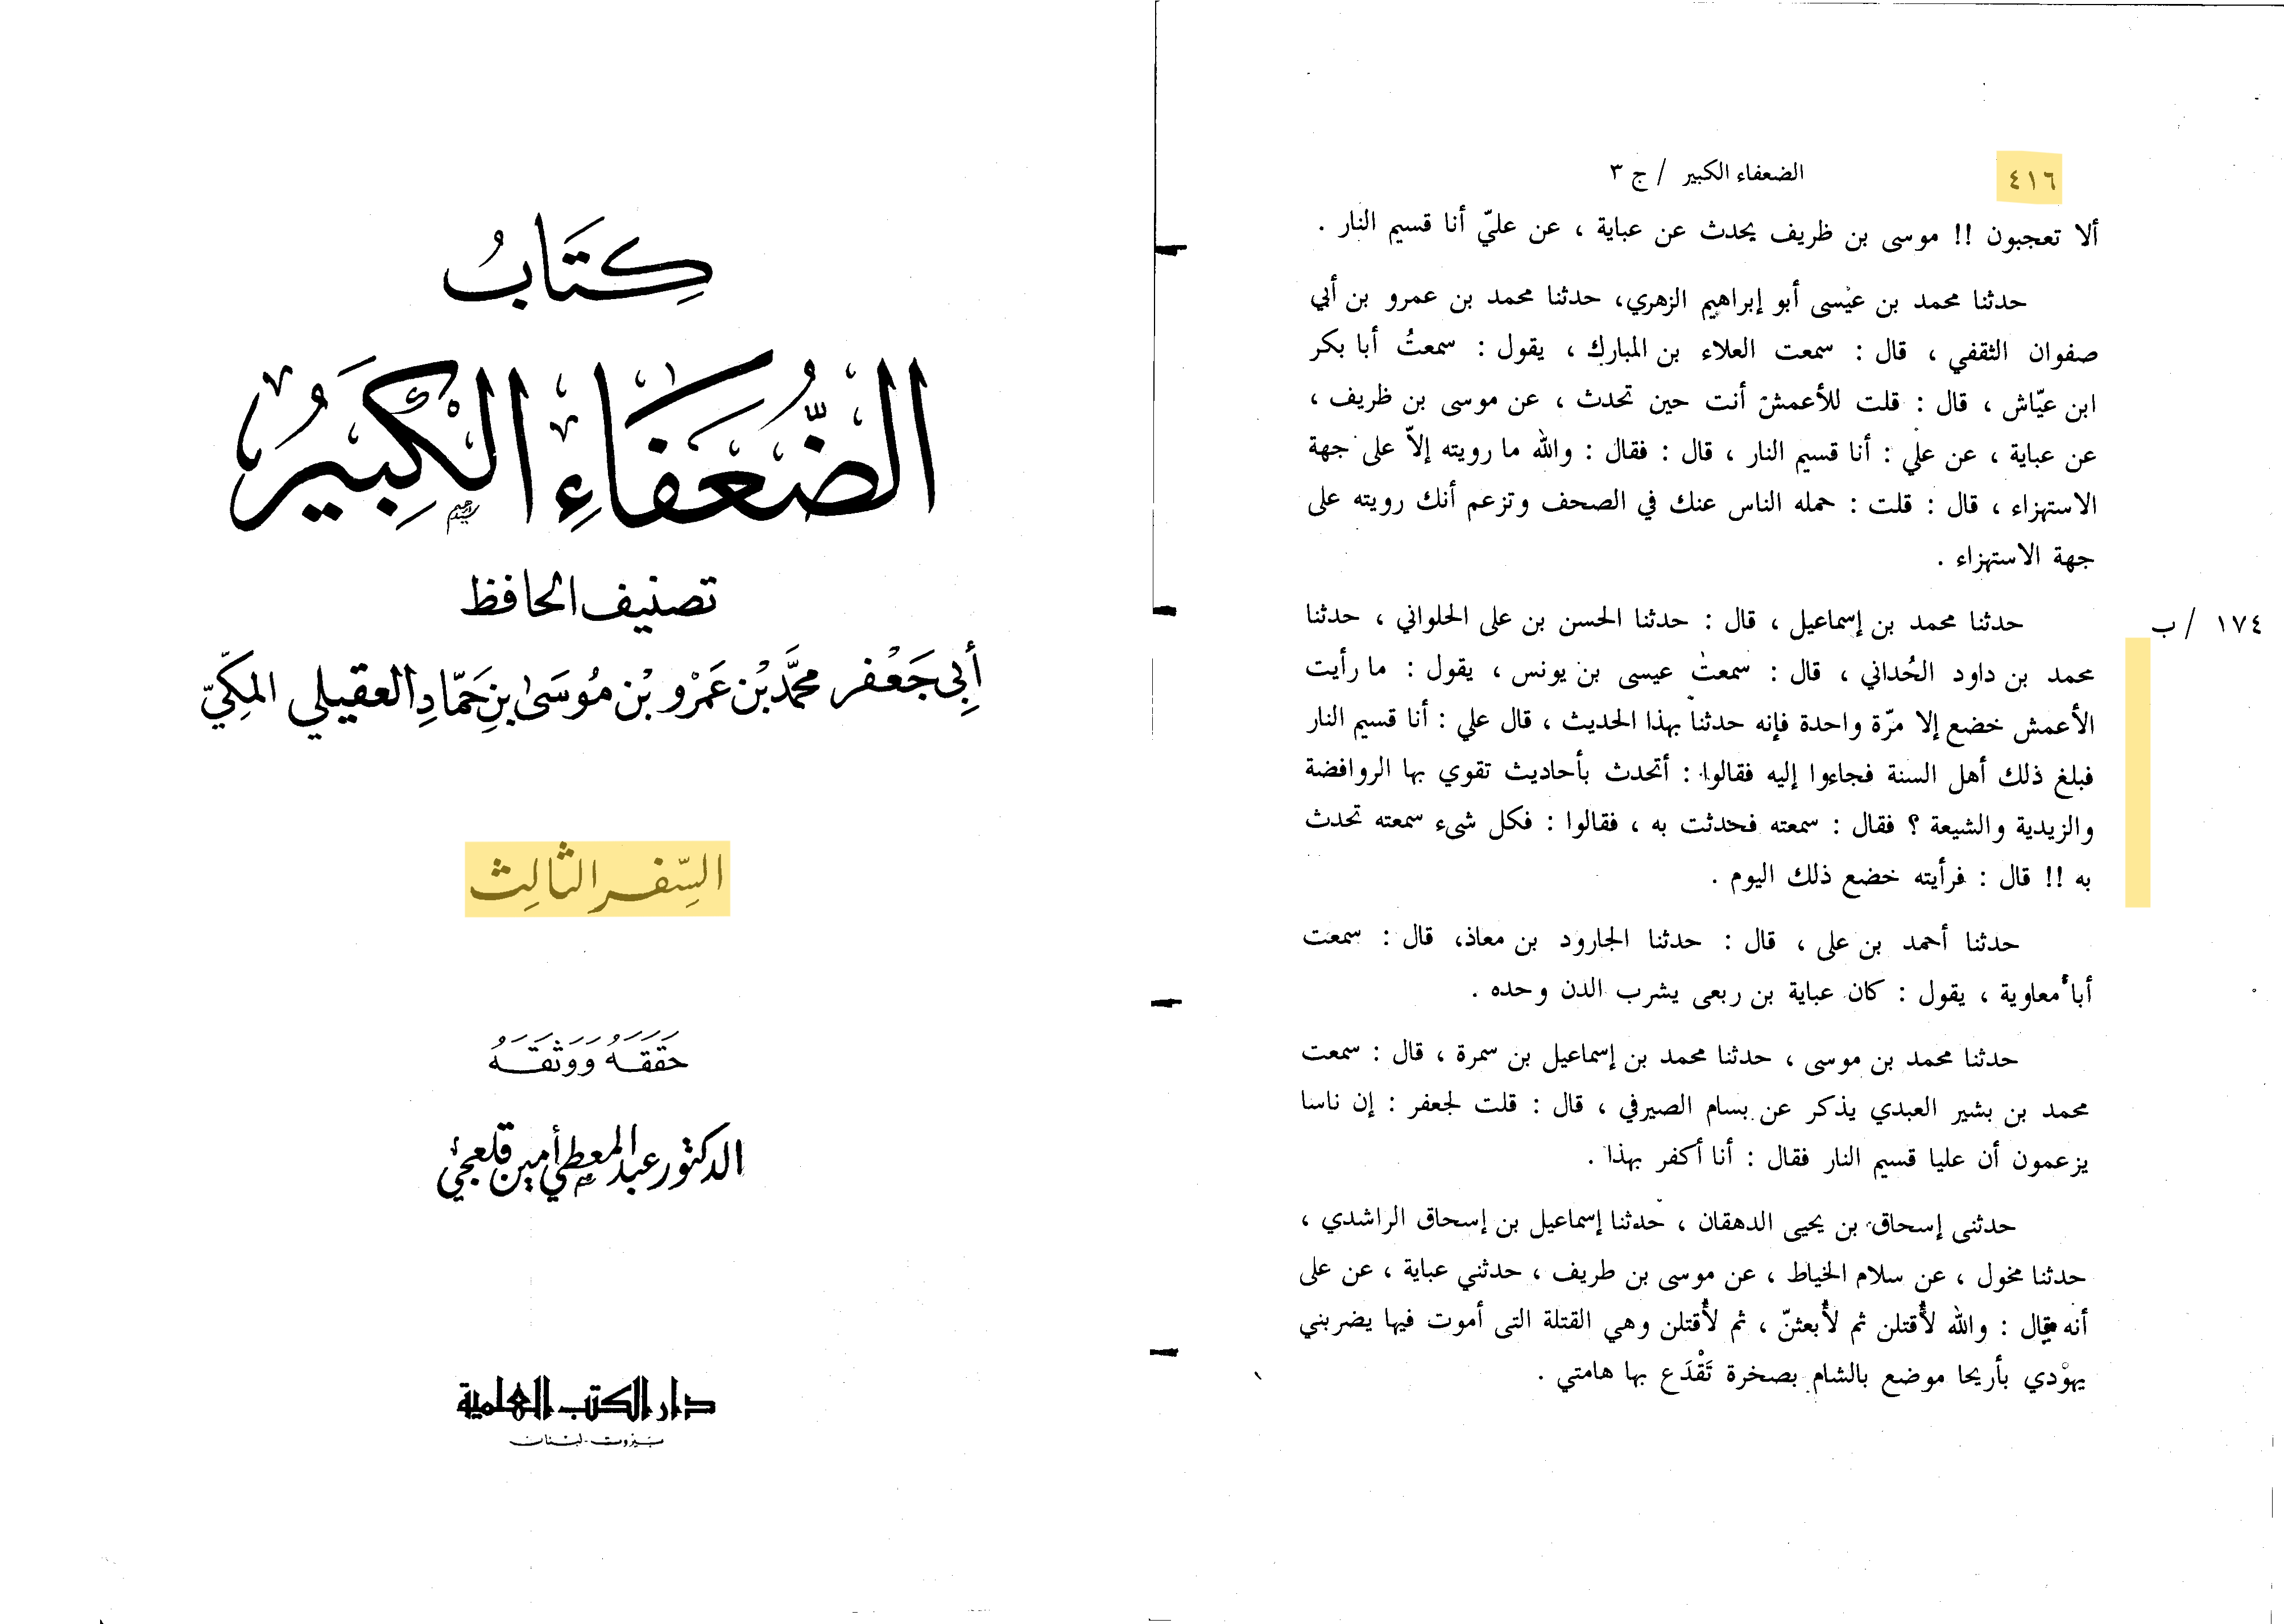 كِتَابُ
الضُّعَفَاءِ الْكَبِيرُ
تصنيف الحافظ
أبي جَعْفر محمَّد بْن عَمْرو بْن مُوسَى بن حَمّادِ العقيلي المكيّ
السِّفر الثالِث
حَقَقَهُ وَوَثَقَهُ
الدكتور عبد المعطي أمين قلعجي
دار الكتب العلمية
بيروت - لبنان
٤١٦
الضعفاء الكبير / ج ٣
ألا تعجبون !! موسى بن ظريف يحدث عن عباية ، عن عليّ أنا قسيم النار .
حدثنا محمد بن عيسى أبو إبراهيم الزهري، حدثنا محمد بن عمرو بن أبي
صفوان الثقفي ، قال : سمعت العلاء بن المبارك ، يقول : سمعتُ أبا بكر
ابن عيّاش ، قال : قلت للأعمش أنت حين تحدث ، عن موسى بن ظريف ،
عن عباية ، عن علي : أنا قسيم النار ، قال : فقال : والله ما رويته إلاّ على جهة
الاستهزاء ، قال : قلت : حمله الناس عنك في الصحف وتزعم أنك رويته على
جهة الاستهزاء .
حدثنا محمد بن إسماعيل ، قال : حدثنا الحسن بن على الحلواني ، حدثنا
١٧٤ / ب
محمد بن داود الحُداني ، قال : سمعت عيسى بن يونس ، يقول : ما رأيت
الأعمش خضع إلا مرّة واحدة فإنه حدثنا بهذا الحديث ، قال علي : أنا قسيم النار
فبلغ ذلك أهل السنة فجاءوا إليه فقالوا : أتحدث بأحاديث تقوي بها الروافضة
والزيدية والشيعة ؟ فقال : سمعته فحدثت به ، فقالوا : فكل شىء سمعته تحدث
به !! قال : فرأيته خضع ذلك اليوم .
حدثنا أحمد بن على ، قال : حدثنا الجارود بن معاذ، قال : سمعت
أبا معاوية ، يقول : كان عباية بن ربعى يشرب الدن وحده .
حدثنا محمد بن موسى ، حدثنا محمد بن إسماعيل بن سمرة ، قال : سمعت
محمد بن بشير العبدي يذكر عن بسام الصيرفي ، قال : قلت لجعفر : إن ناسا
يزعمون أن عليا قسيم النار فقال : أنا أكفر بهذا .
حدثنى إسحاق بن يحيى الدهقان ، حدثنا إسماعيل بن إسحاق الراشدي ،
حدثنا مخول ، عن سلام الخياط ، عن موسى بن طريف ، حدثني عباية ، عن على
أنه قال : والله لأُقتلن ثم لأُبعثنّ ، ثم لأُقتلن وهي القتلة التى أموت فيها يضربني
يهوْدي بأريحا موضع بالشام بصخرة تَقْدَع بها هامتي .